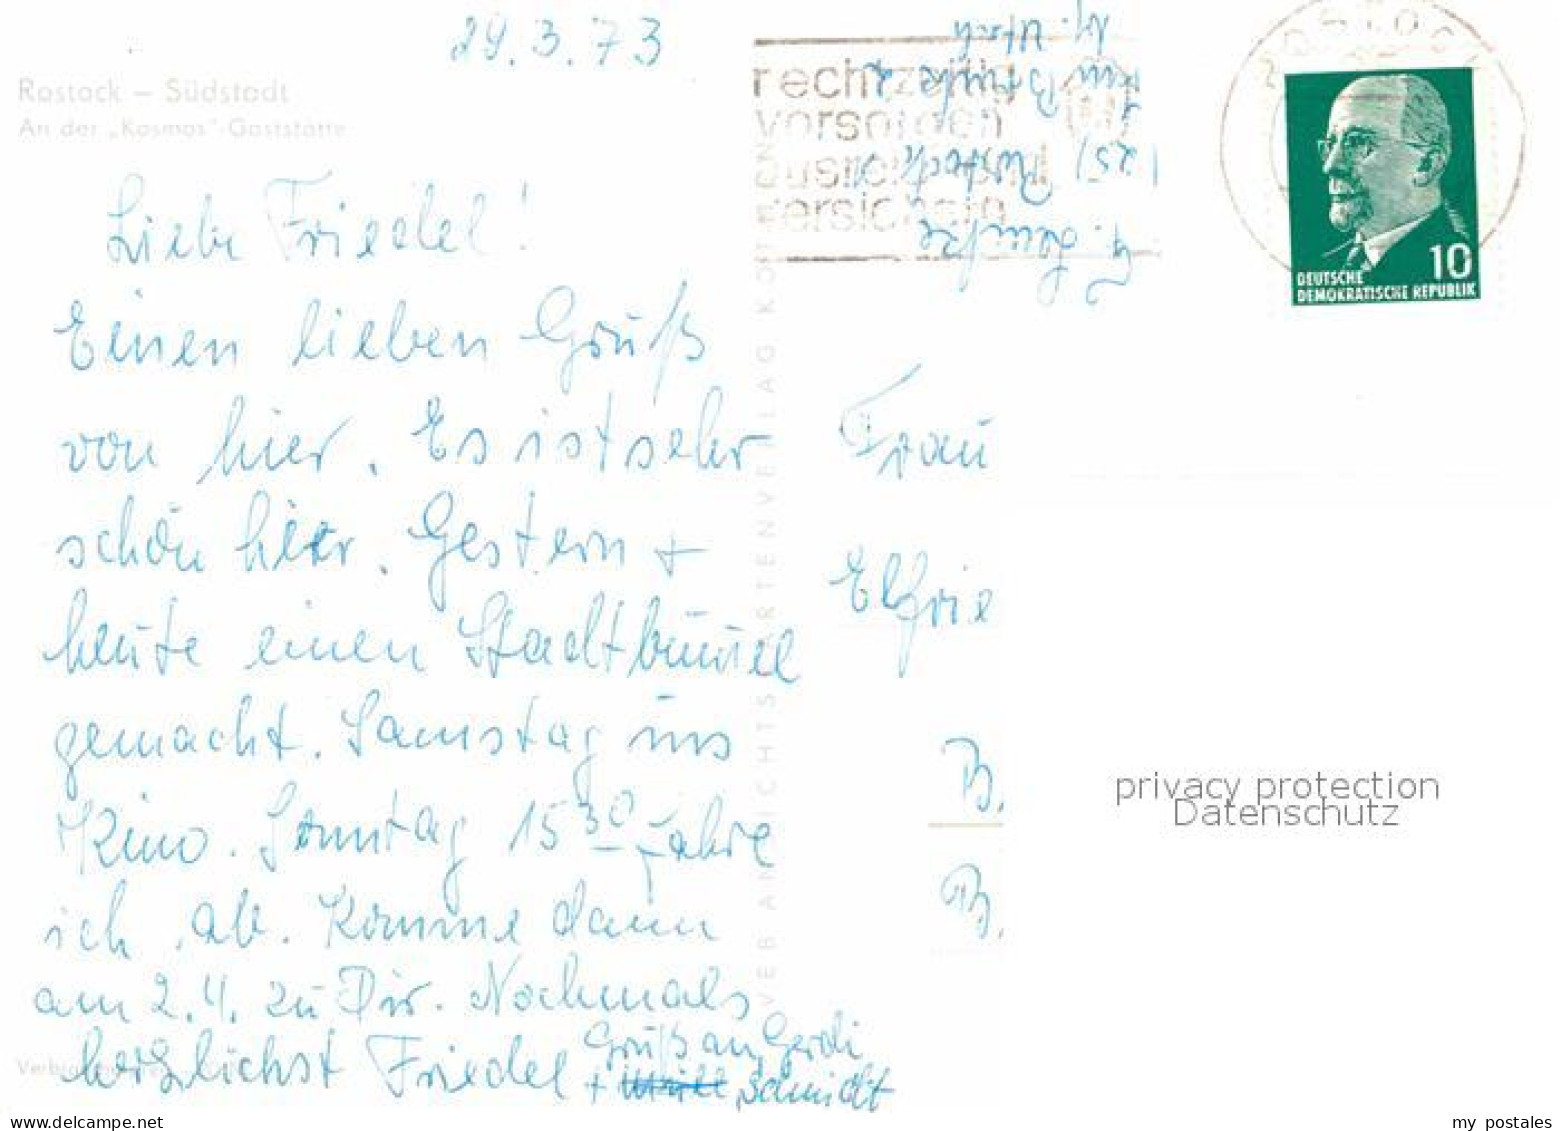 29.3.73
Rostock – Südstadt
An der „Kosmos"-Gaststätte
Liebe Friedel!
Einen lieben Gruß
von hier. Es ist sehr
schön hier. Gestern +
heute einen Stadtbummel
gemacht. Samstag ins
Kino. Sonntag 15³⁰ fahre
ich ab. Komme dann
am 2.4. zu Dir. Nochmals
herzlichst Friedel
Gruß an Gerdi
+ Schmidt
VEB ANSICHTSKARTENVERLAG KÖ
rechtzeitig
vorsorgen
ausreichend
versichern
(25) Rostock
10
DEUTSCHE
DEMOKRATISCHE REPUBLIK
Frau
Elfrie
B.
B.
privacy protection
Datenschutz
delcampe.net
my_postales